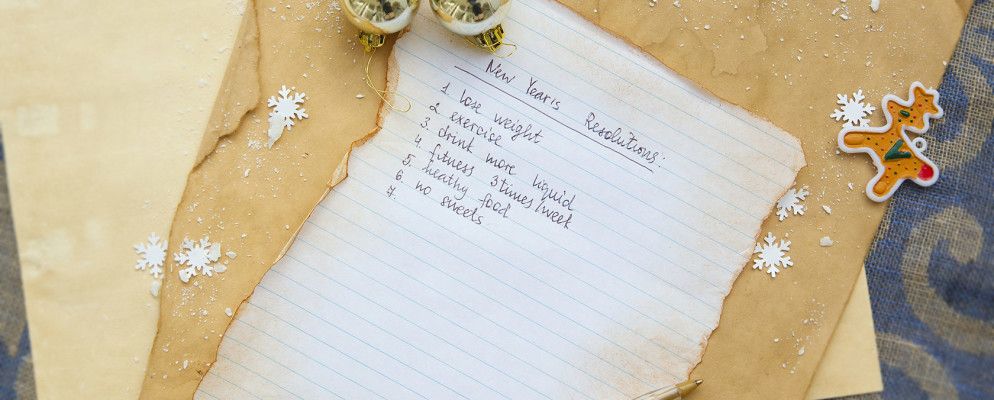 New Year's Resolutions:
1 lose weight
2 exercise
3. drink more liquid
4. fitness 3 times/week
5. heathy food
6. no sweets
7.